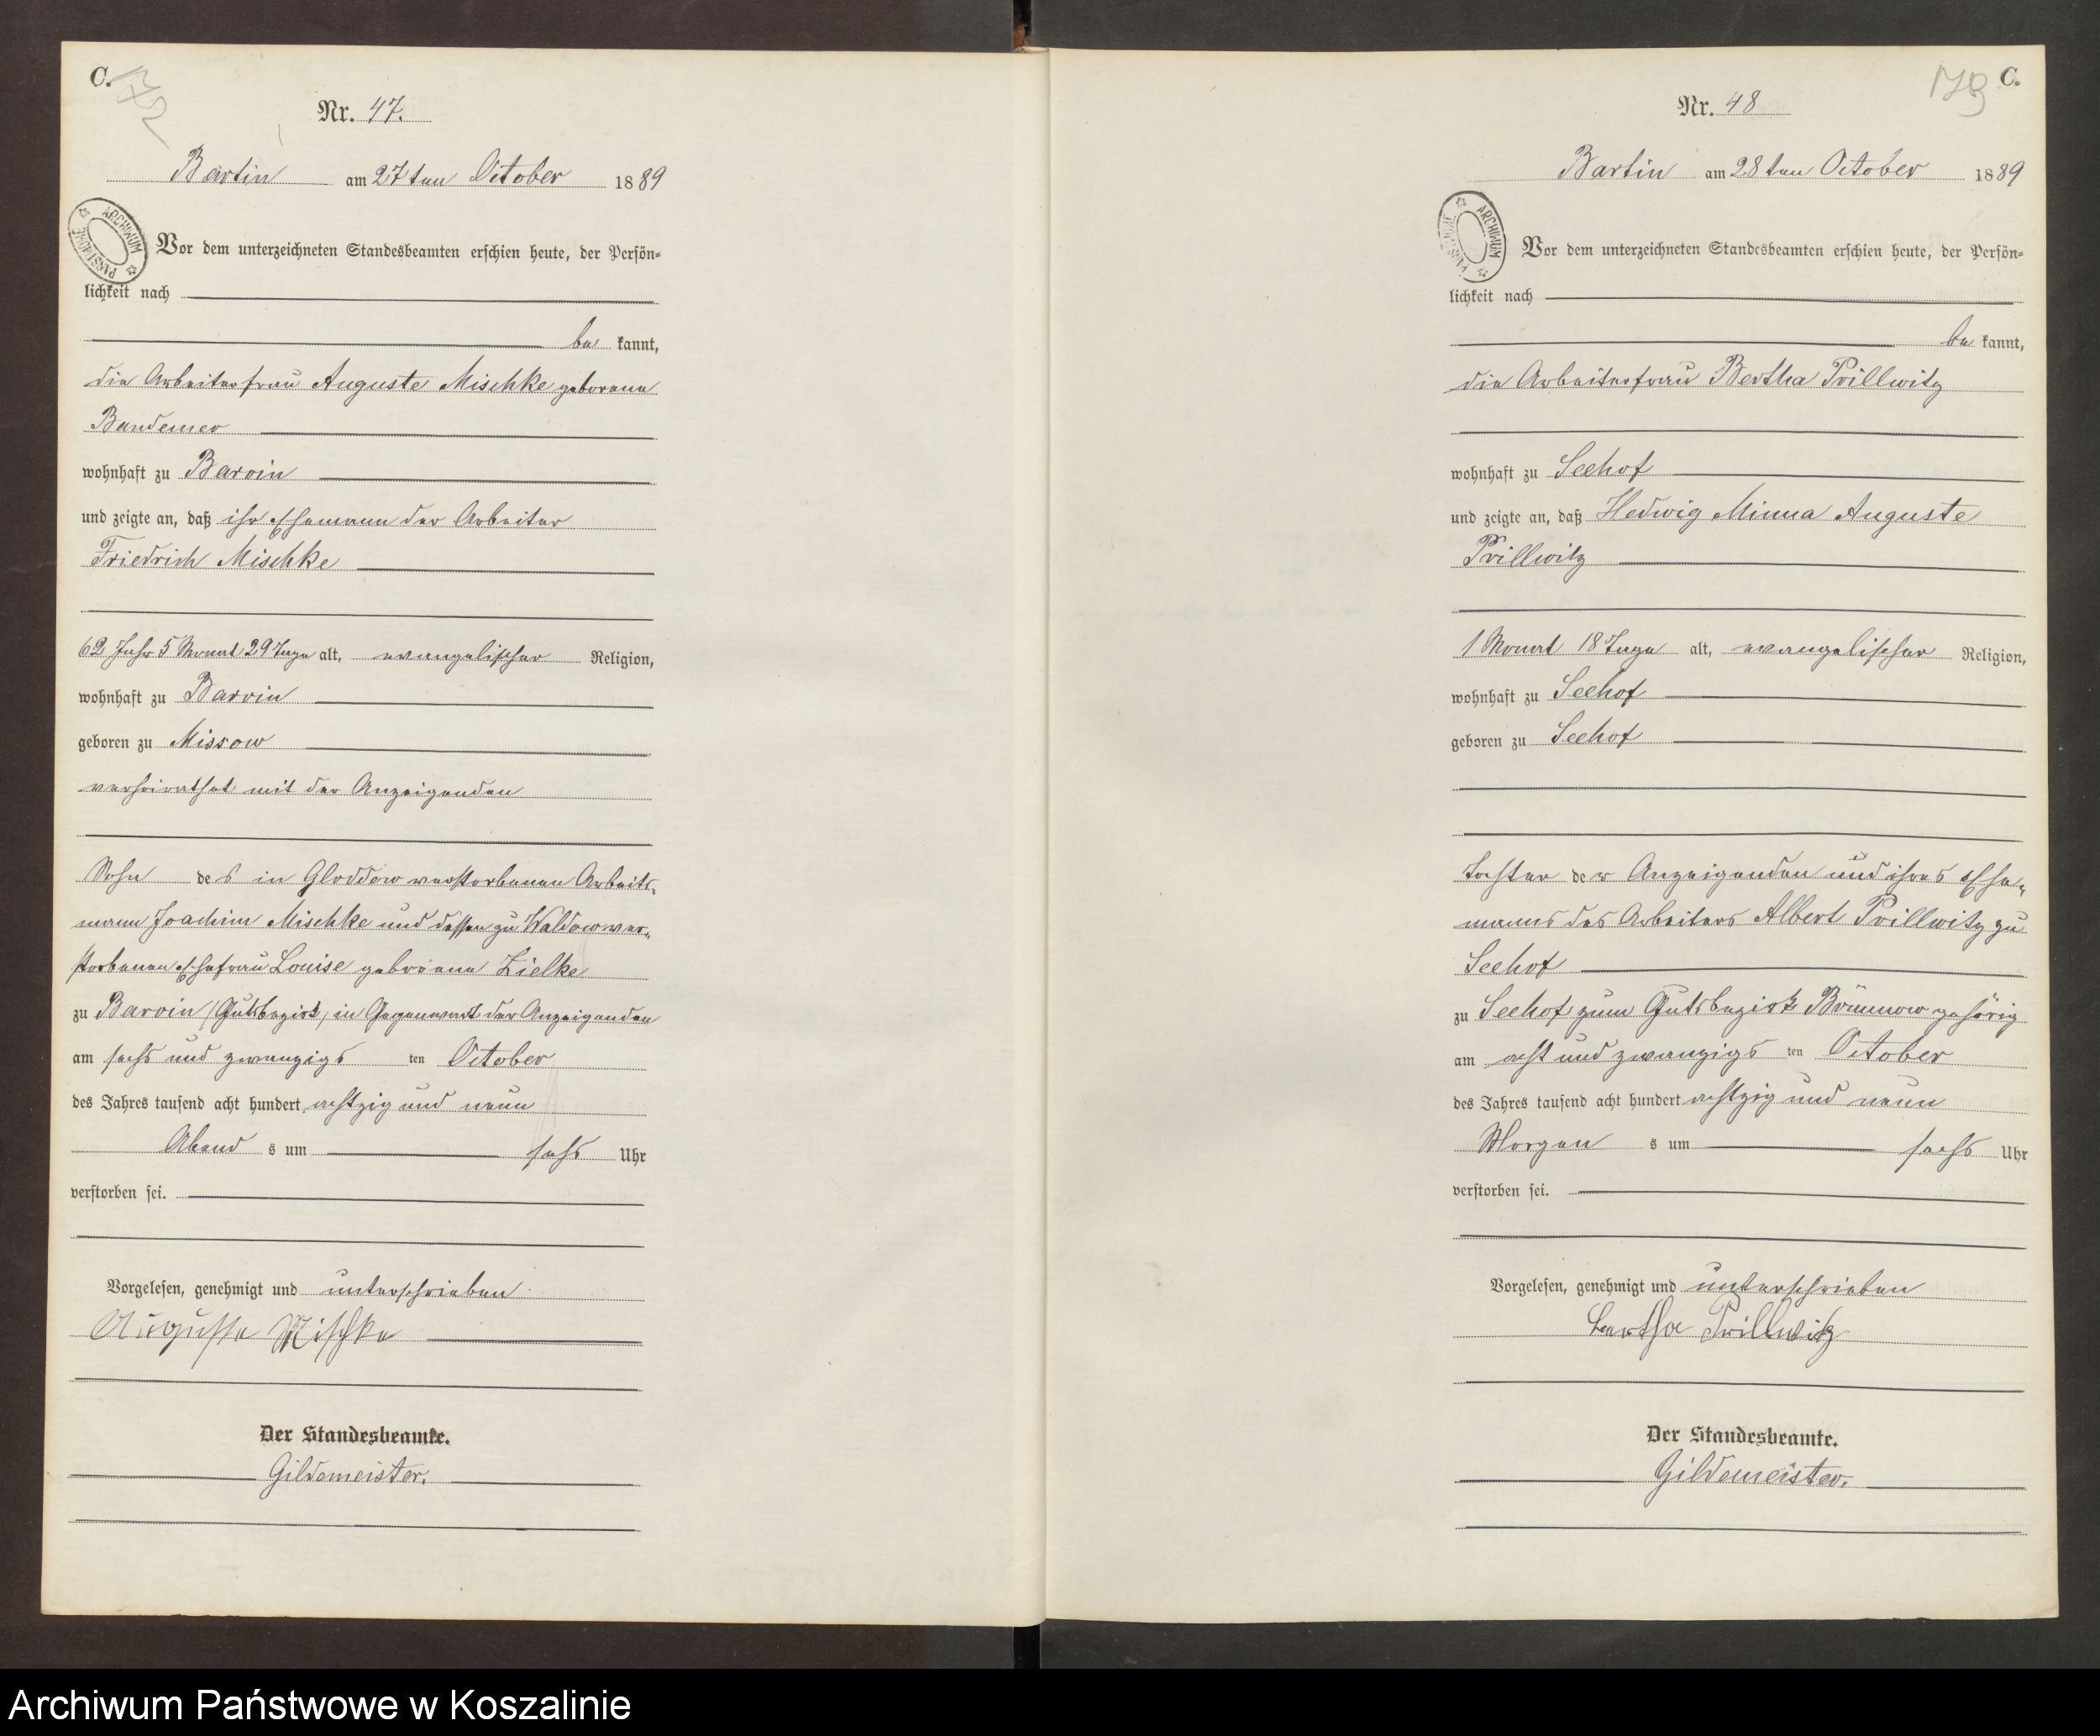 C.
172
Nr. 47.
Bartin am 27ten October 1889
ARCHIWUM PAŃSTWOWE
Vor dem unterzeichneten Standesbeamten erschien heute, der Persön-
lichkeit nach
be kannt,
die Arbeiterfrau Auguste Mischke geborene
Bandemer
wohnhaft zu Barvin
und zeigte an, daß ihr Ehemann der Arbeiter
Friedrich Mischke
62 Jahr 5 Monat 29 Tage alt, evangelischer Religion,
wohnhaft zu Barvin
geboren zu Missow
verheirathet mit der Anzeigenden
Sohn des in Gloddow verstorbenen Arbeits-
mann Joachim Mischke und dessen zu Waldow ver-
storbenen Ehefrau Louise geborene Zielke
zu Barvin /Gutsbezirk/ in Gegenwart der Anzeigenden
am sechs und zwanzigs ten October
des Jahres tausend acht hundert achtzig und neun
Abend s um sechs Uhr
verstorben sei.
Vorgelesen, genehmigt und unterschrieben
Auguste Mischke
Der Standesbeamte.
Gildemeister.
173
C.
Nr. 48
Bartin am 28ten October 1889
ARCHIWUM PAŃSTWOWE
Vor dem unterzeichneten Standesbeamten erschien heute, der Persön-
lichkeit nach
be kannt,
die Arbeiterfrau Bertha Prillwitz
wohnhaft zu Seehof
und zeigte an, daß Hedwig Minna Auguste
Prillwitz
1 Monat 18 Tage alt, evangelischer Religion,
wohnhaft zu Seehof
geboren zu Seehof
Tochter der Anzeigenden und ihres Ehe-
manns des Arbeiters Albert Prillwitz zu
Seehof
zu Seehof zum Gutsbezirk Brünnow gehörig
am acht und zwanzigs ten October
des Jahres tausend acht hundert achtzig und neun
Morgen s um sechs Uhr
verstorben sei.
Vorgelesen, genehmigt und unterschrieben
Bertha Prillwitz
Der Standesbeamte.
Gildemeister.
Archiwum Państwowe w Koszalinie